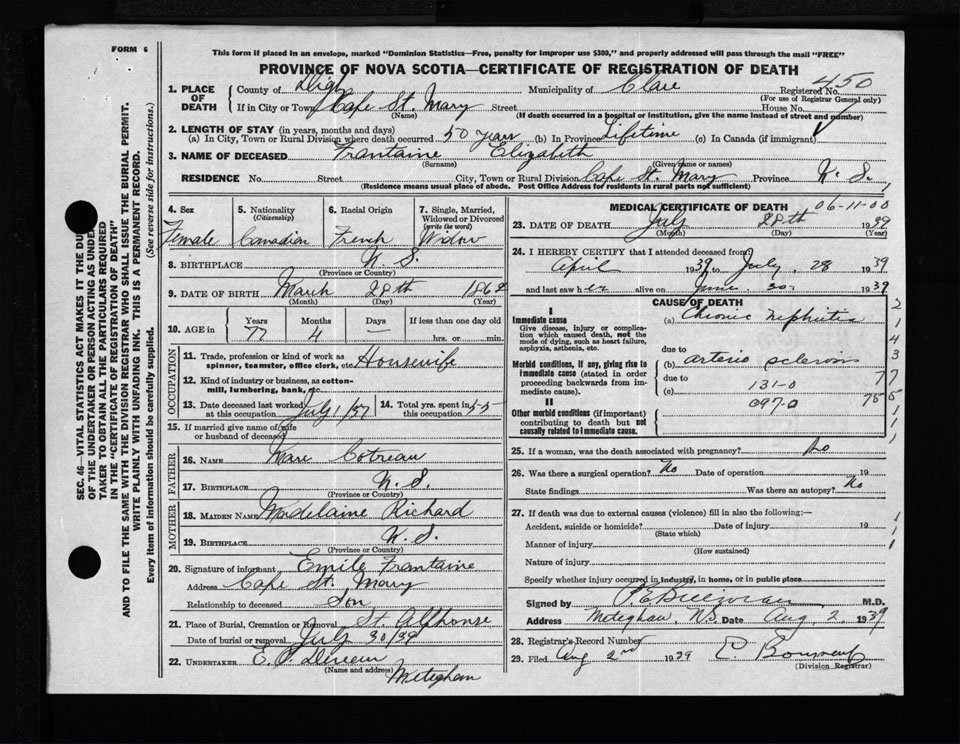 FORM 6
This form if placed in an envelope, marked "Dominion Statistics—Free, penalty for improper use $300," and properly addressed will pass through the mail "FREE"
PROVINCE OF NOVA SCOTIA—CERTIFICATE OF REGISTRATION OF DEATH
1. PLACE OF DEATH
County of Digby Municipality of Clare Registered No. 450
(For use of Registrar General only)
If in City or Town Cape St. Mary Street House No.
(Name) (If death occurred in a hospital or institution, give the name instead of street and number)
2. LENGTH OF STAY (in years, months and days)
(a) In City, Town or Rural Division where death occurred 50 years (b) In Province Lifetime (c) In Canada (if immigrant)
3. NAME OF DECEASED Frantaine Elizabeth
(Surname) (Given name or names)
RESIDENCE No. Street City, Town or Rural Division Cape St. Mary Province N. S.
(Residence means usual place of abode. Post Office Address for residents in rural parts not sufficient)
4. Sex Female
5. Nationality (Citizenship) Canadian
6. Racial Origin French
7. Single, Married, Widowed or Divorced (write the word) Widow
8. BIRTHPLACE N. S.
(Province or Country)
9. DATE OF BIRTH March 28th 1862
(Month) (Day) (Year)
10. AGE in Years Months Days If less than one day old
77 4 — hrs. or min.
OCCUPATION
11. Trade, profession or kind of work as spinner, teamster, office clerk, etc. Housewife
12. Kind of industry or business, as cotton-mill, lumbering, bank, etc.
13. Date deceased last worked at this occupation July 1/37
14. Total yrs. spent in this occupation 55
15. If married give name of wife or husband of deceased
FATHER
16. NAME Marc Cotreau
17. BIRTHPLACE N. S.
(Province or Country)
MOTHER
18. MAIDEN NAME Madelaine Richard
19. BIRTHPLACE N. S.
(Province or Country)
20. Signature of informant Emile Frantaine
Address Cape St. Mary
Relationship to deceased Son
21. Place of Burial, Cremation or Removal St. Alphonse
Date of burial or removal July 30/39
22. UNDERTAKER E. P.
(Name and address) Meteghan
MEDICAL CERTIFICATE OF DEATH 06-11-00
23. DATE OF DEATH July 28th 1939
(Month) (Day) (Year)
24. I HEREBY CERTIFY that I attended deceased from
April 1939 to July 28 1939
and last saw her alive on June 30 1939
CAUSE OF DEATH
I
Immediate cause (a) Chronic Nephritis
Give disease, injury or complication which caused death, not the mode of dying, such as heart failure, asphyxia, asthenia, etc.
due to
Morbid conditions, if any, giving rise to immediate cause (stated in order proceeding backwards from immediate cause)
(b) arterio sclerosis
due to 131-0
(c) 097-0
II
Other morbid conditions (if important) contributing to death but not causally related to immediate cause.
2
1
4
3
77
75
25. If a woman, was the death associated with pregnancy? No
26. Was there a surgical operation? No Date of operation 19
State findings Was there an autopsy? No
27. If death was due to external causes (violence) fill in also the following:—
Accident, suicide or homicide? Date of injury 19
(State which)
Manner of injury
(How sustained)
Nature of injury
Specify whether injury occurred in industry, in home, or in public place
Signed by M.D.
Address Meteghan, N.S. Date Aug 2, 1939
28. Registrar's Record Number
29. Filed Aug 2nd 1939
(Division Registrar)
SEC. 46—VITAL STATISTICS ACT MAKES IT THE DU
OF THE UNDERTAKER OR PERSON ACTING AS UNDER
TAKER TO OBTAIN ALL THE PARTICULARS REQUIRED
IN THE "CERTIFICATE OF REGISTRATION OF DEATH"
AND TO FILE THE SAME WITH THE DIVISION REGISTRAR WHO SHALL ISSUE THE BURIAL PERMIT.
WRITE PLAINLY WITH UNFADING INK. THIS IS A PERMANENT RECORD.
Every item of information should be carefully supplied. (See reverse side for instructions.)